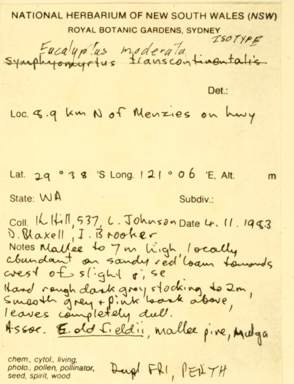 NATIONAL HERBARIUM OF NEW SOUTH WALES (NSW)
ROYAL BOTANIC GARDENS, SYDNEY
ISOTYPE
Eucalyptus moderata
Symphyomyrtus transcontinentalis
Det.:
Loc. 8.9 km N of Menzies on hwy
Lat. 29 ° 38 'S Long. 121 ° 06 'E, Alt. m
State: WA Subdiv.:
Coll. K Hill, 537, L. Johnson Date 4.11.1983
D. Blaxell, I. Brooker
Notes Mallee to 7m high, locally
abundant on sandy red loam towards
crest of slight rise
Hard rough dark grey stocking to 2m,
smooth grey + pink bark above,
leaves completely dull.
Assoc. E. oldfieldii, mallee pine, Mulga
chem., cytol., living,
photo, pollen, pollinator,
seed, spirit, wood
Dupl FRI, PERTH